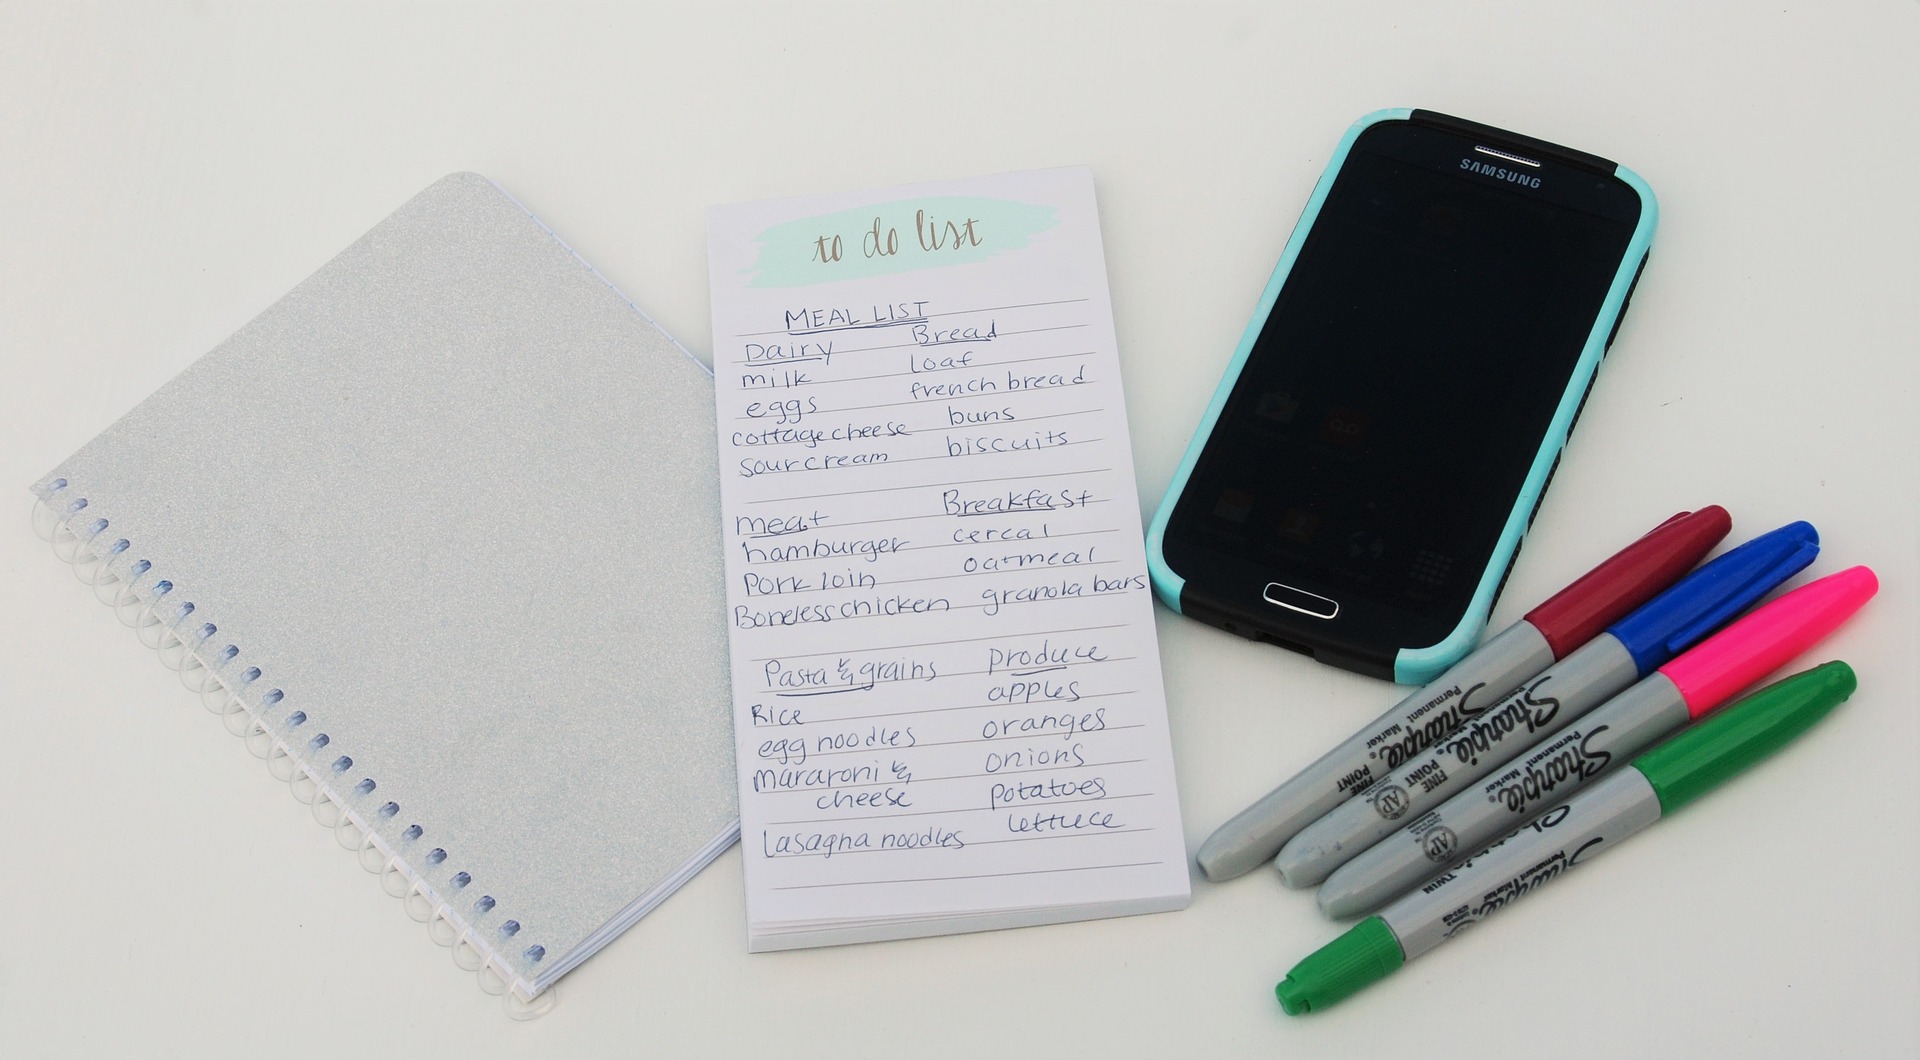 to do list
MEAL LIST
Dairy
milk
eggs
cottage cheese
sour cream
Bread
loaf
french bread
buns
biscuits
meat
hamburger
Pork loin
Boneless chicken
Breakfast
cereal
oatmeal
granola bars
Pasta & grains
Rice
egg noodles
mararoni &
cheese
Lasagna noodles
produce
apples
oranges
onions
potatoes
lettuce
SAMSUNG
Sharpie®
Permanent Marker
FINE POINT
Sharpie®
Permanent Marker
FINE POINT
AP
Sharpie®
Permanent Marker
AP
Sharpie
Permanent Marker
TWIN